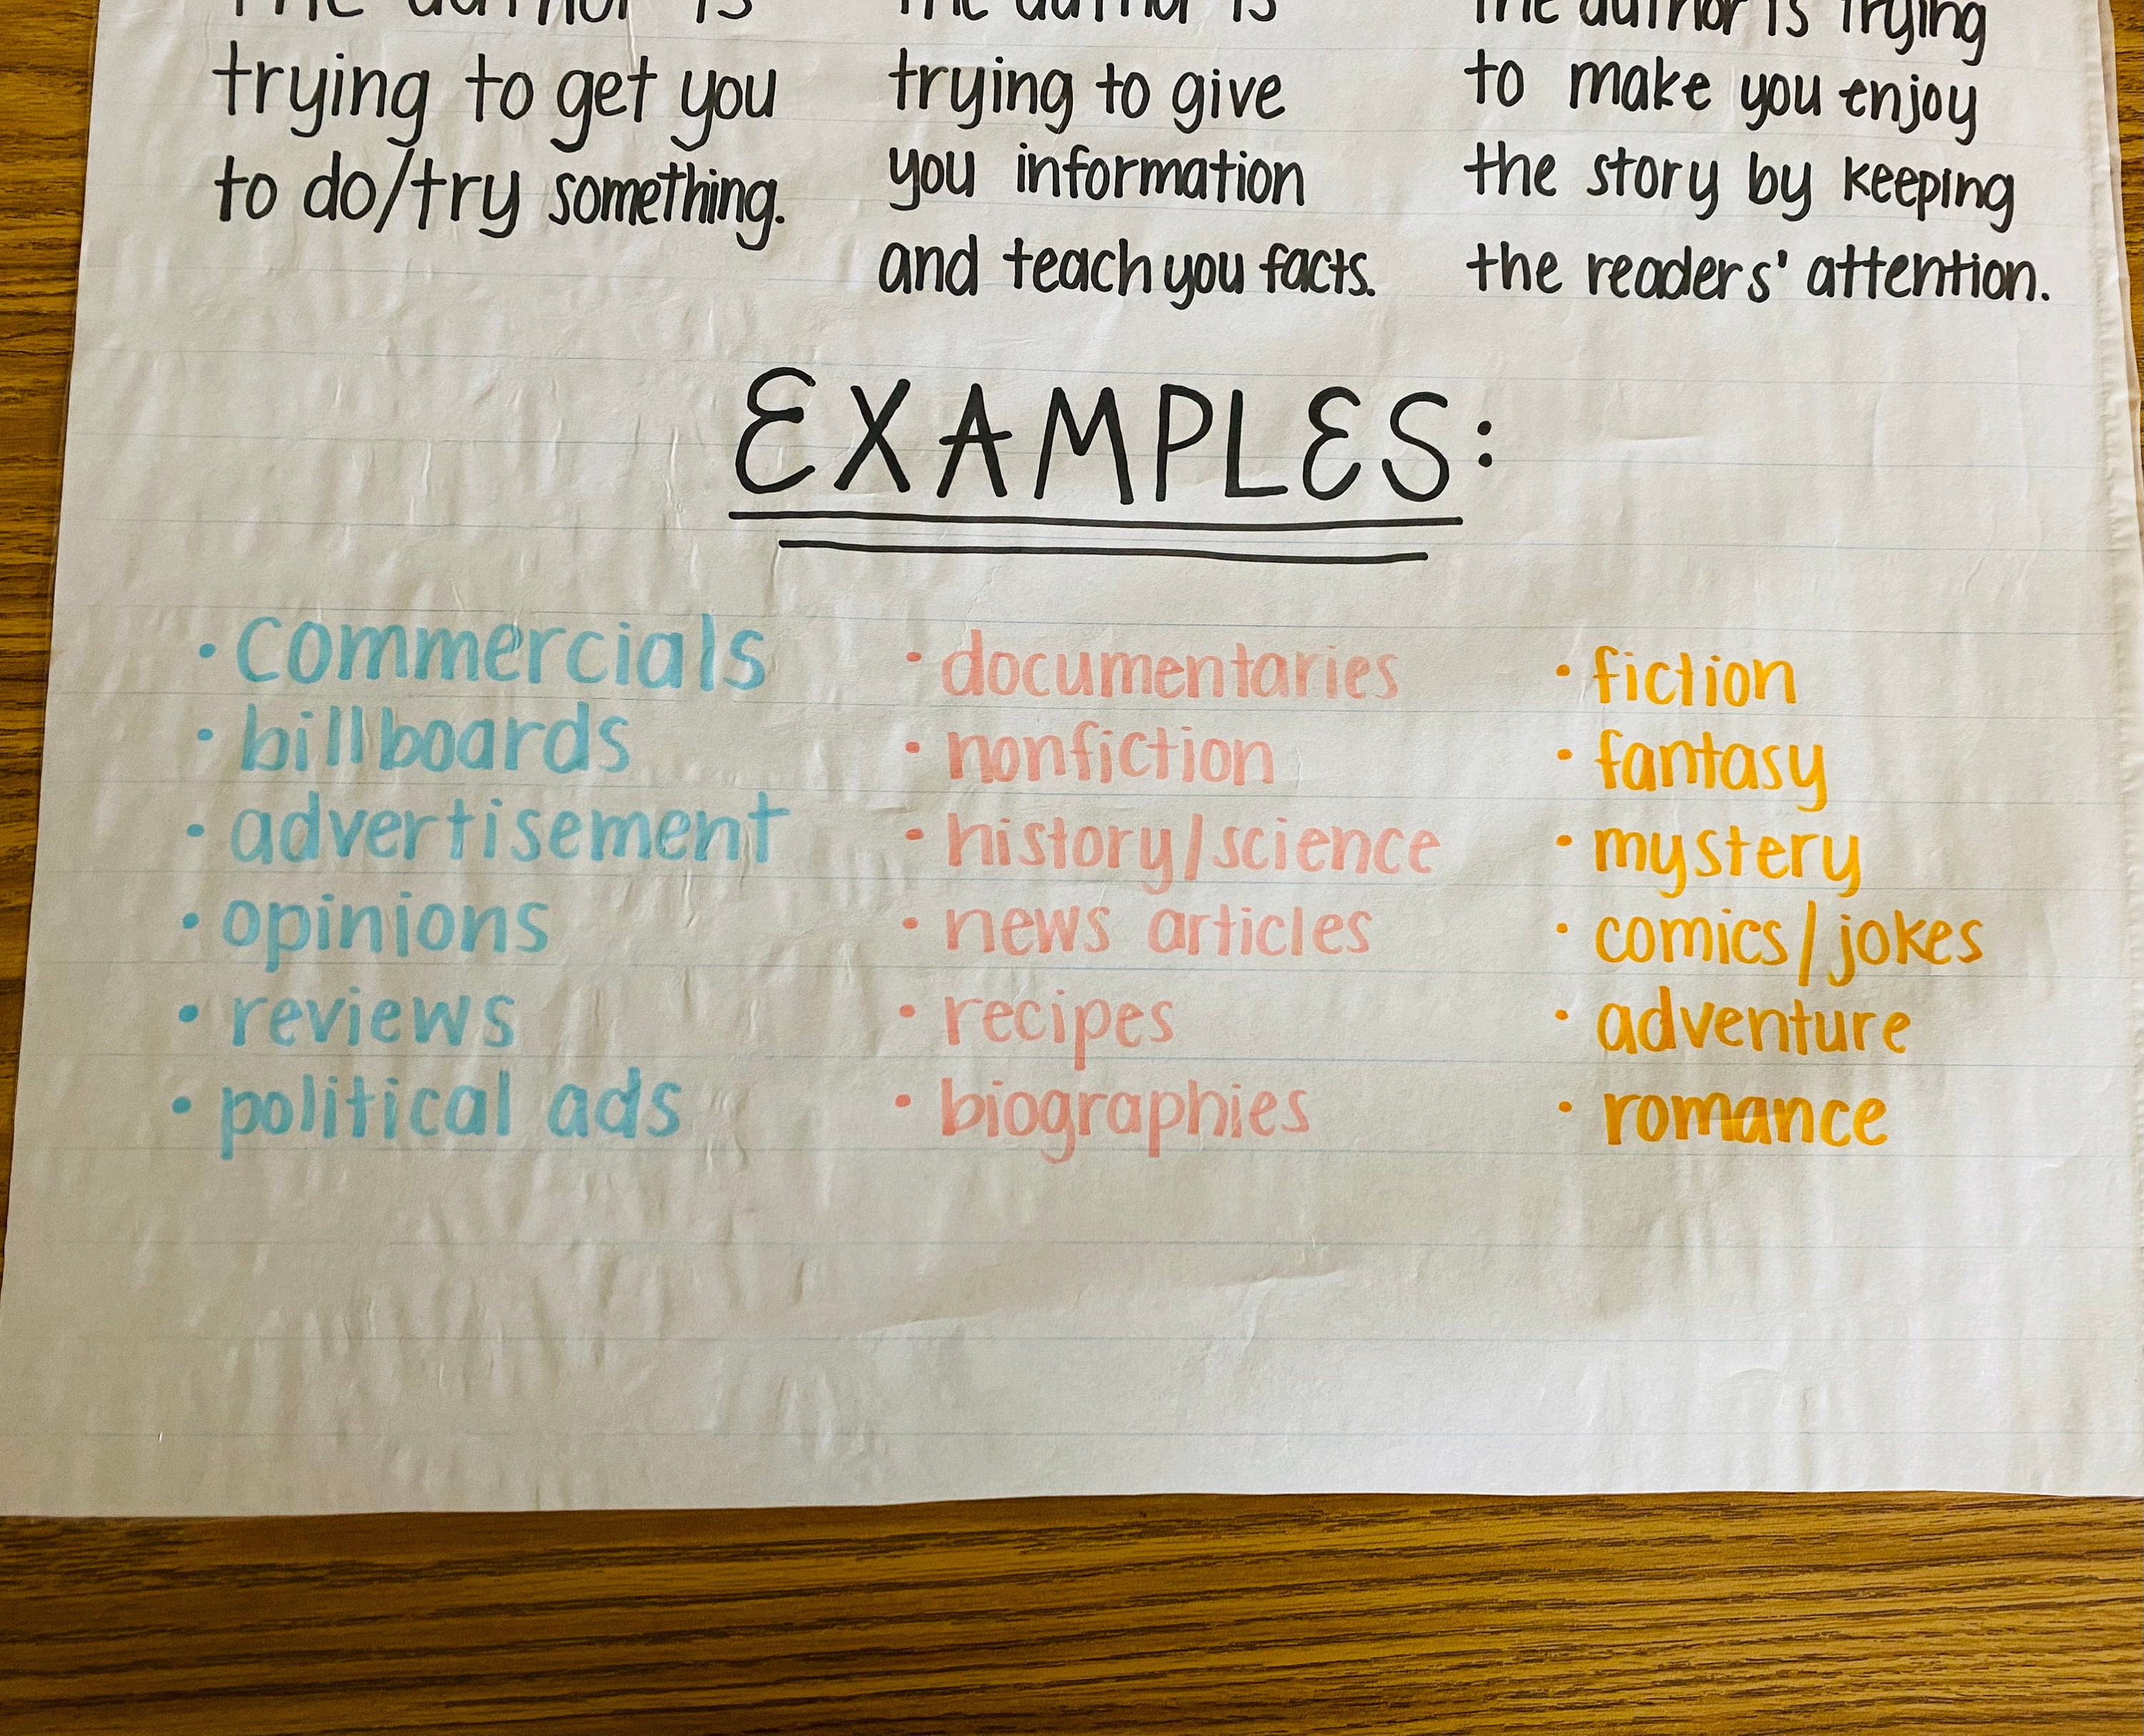 The author is
trying to get you
to do/try something.
The author is
trying to give
you information
and teach you facts.
The author is trying
to make you enjoy
the story by keeping
the readers' attention.
EXAMPLES:
• Commercials
• billboards
• advertisement
• opinions
• reviews
• political ads
• documentaries
• nonfiction
• history/science
• news articles
• recipes
• biographies
• fiction
• fantasy
• mystery
• comics/jokes
• adventure
• romance